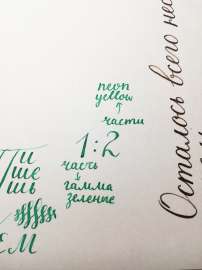 neon
yellow
части
1:2
часть
гамма
зеленые
Пи
ше
шь
ЕМ
Осталось всего нес